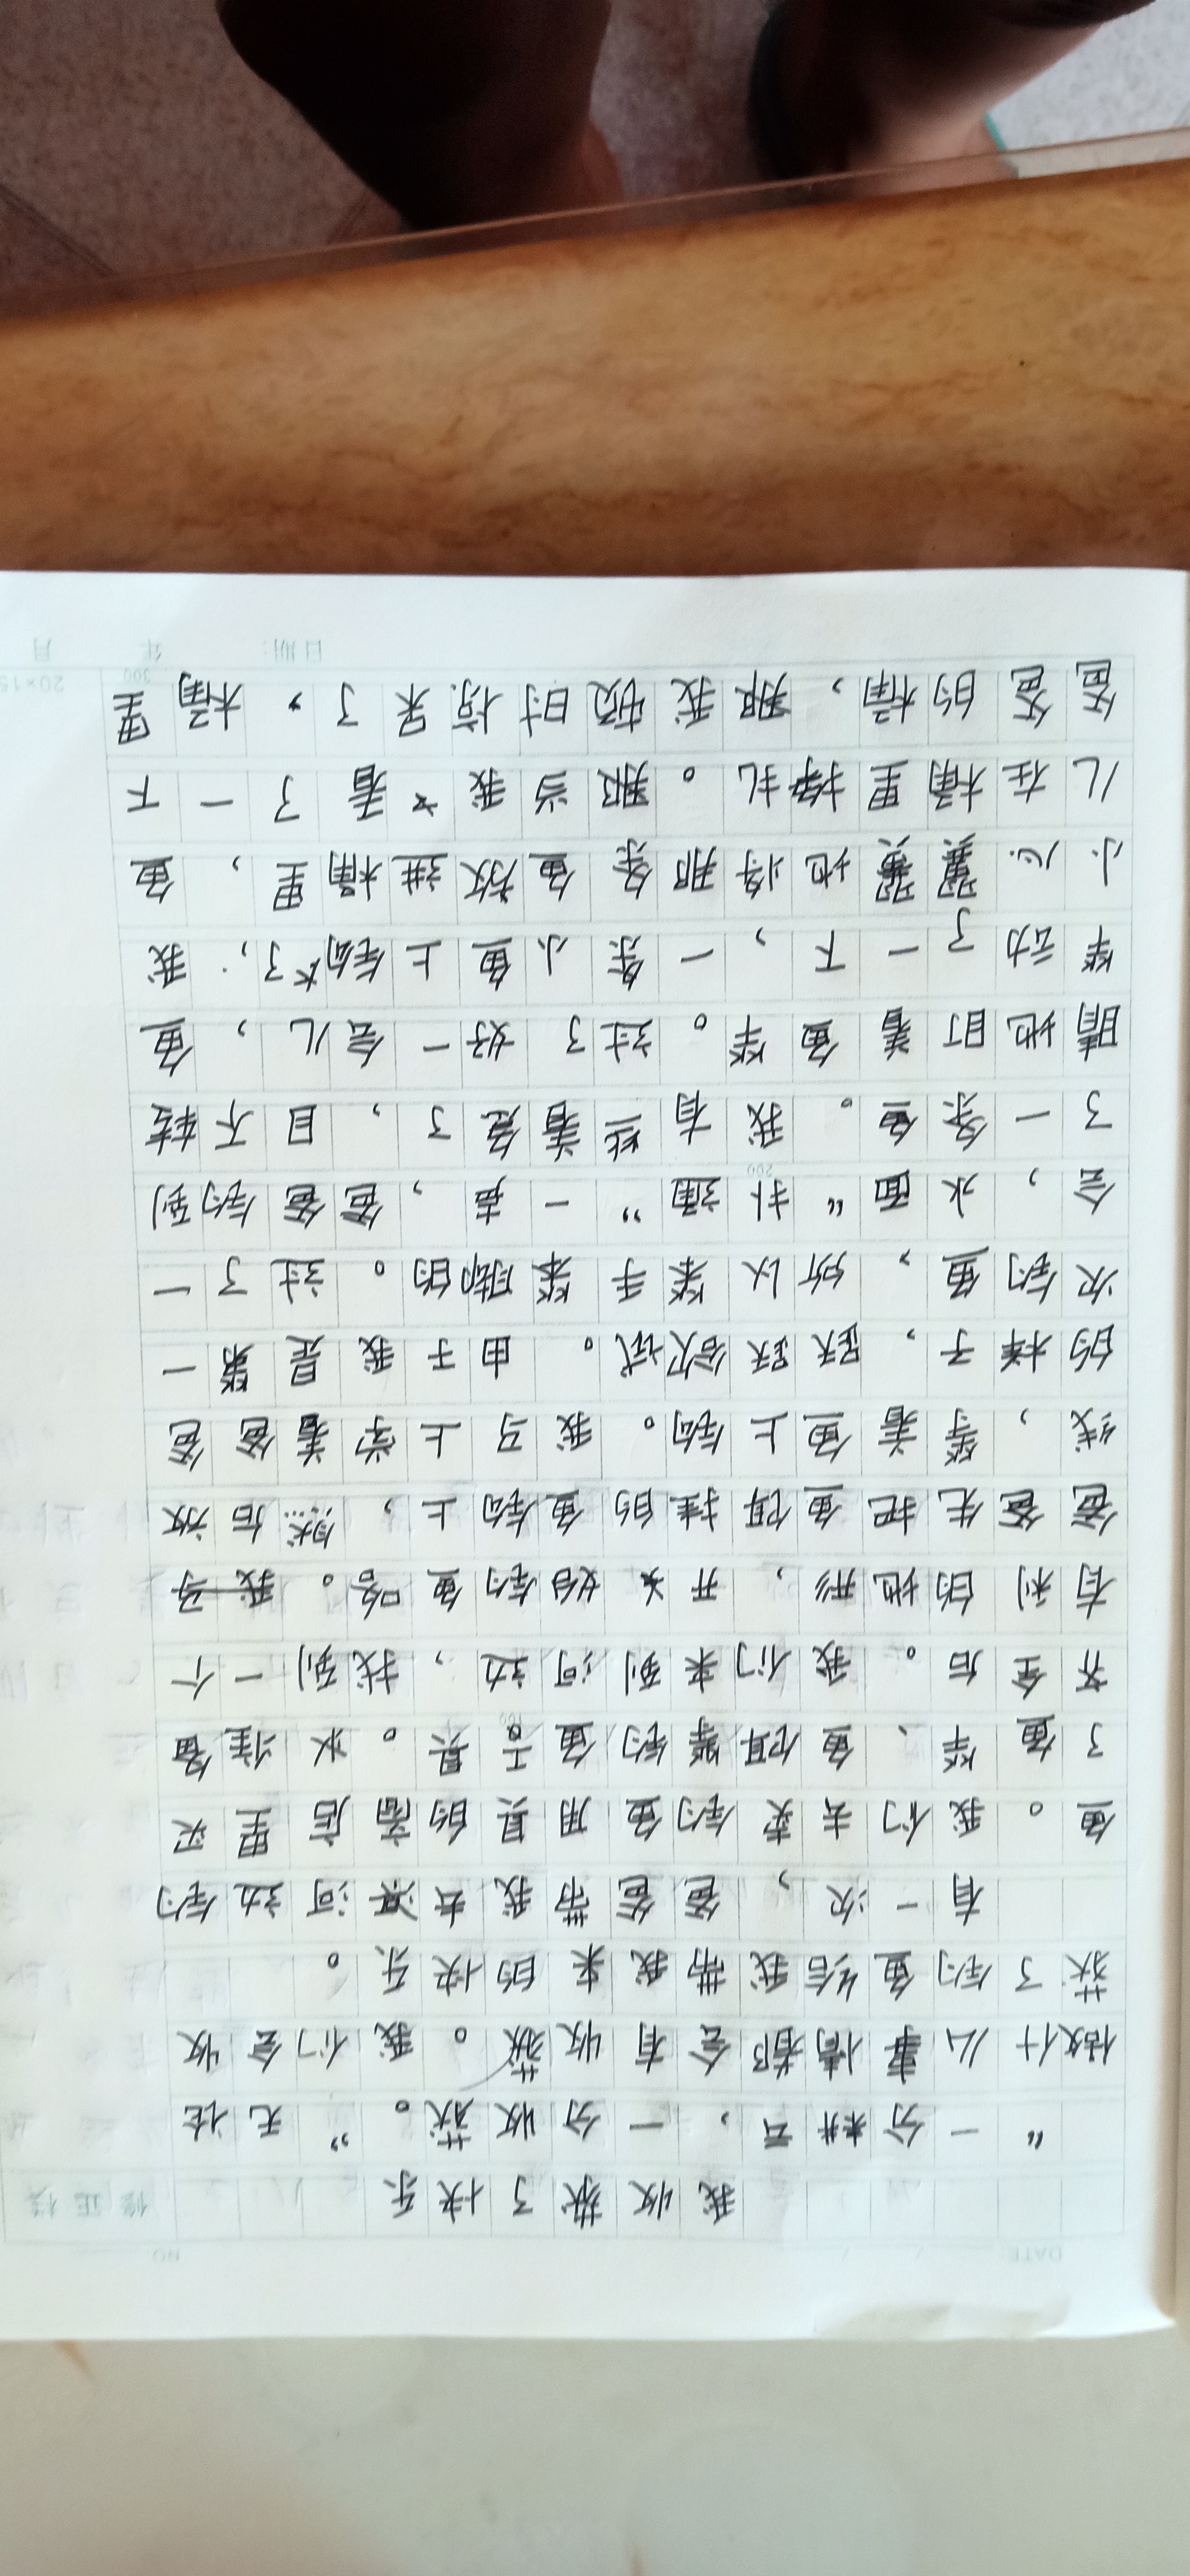 DATE / / NO.
我收获了快乐
修正栏
“一分耕耘，一分收获。”无论
做什么事情都会有收获。我们会收
获了钓鱼给我带我来的快乐。
有一次，爸爸带我去河边钓
鱼。我们去卖钓鱼用具的商店里买
了鱼竿、鱼饵等钓鱼工具。准备
100
齐全后。我们来到河边，找到一个
有利的地形，开始钓鱼咯。
爸爸先把鱼饵挂的鱼钩上，然后放
线，等着鱼上钩。我马上学着爸爸
的样子，跃跃欲试。由于我是第一
次钓鱼，所以笨手笨脚的。过了一
会，水面“扑通”一声，爸爸钓到
200
了一条鱼。我有些着急了，目不转
睛地盯着鱼竿。过了好一会儿，鱼
竿动了一下，一条小鱼上钩了，我
小心翼翼地将那条鱼放进桶里，鱼
儿在桶里挣扎。那当我看了一下
爸爸的桶，那我顿时惊呆了，桶里
300
20×15
日期： 年 月